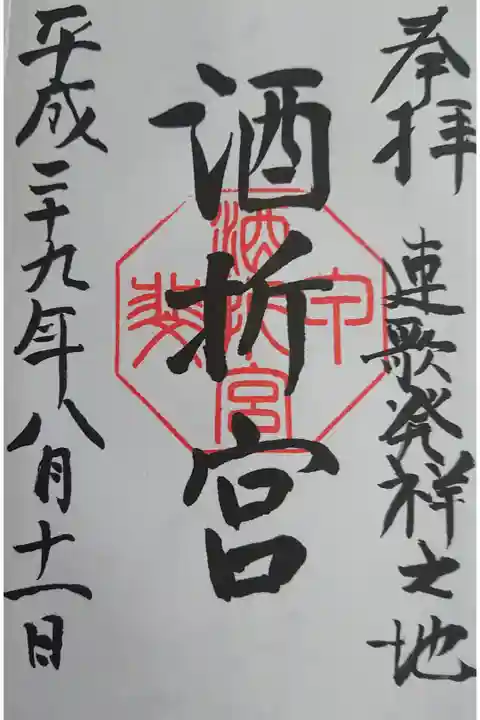 奉拝 連歌発祥之地
酒折宮
平成二十九年八月十一日
甲斐
酒折宮